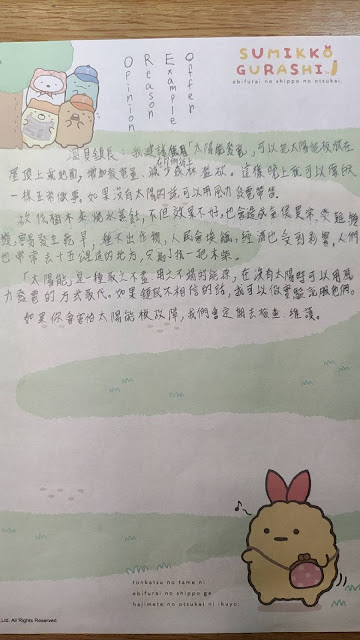 SUMIKKO
GURASHI
ebifurai no shippo no otsukai.
Opinion
Reason
Example
Offer
鎮長：我建議使用「太陽能發電」，可以把太陽能板放在
屋頂上或地面，增加發電量、減少森林盜砍。這樣晚上我可以像
一樣正常做事。如果沒有太陽的話，可以用風力發電
砍伐樹木來燒水，不但效果不好，也會造成全
機，容易發生乾旱，種不出作物，人民會餓，經濟也受到影響，人們
也常常去十五公里遠的地方，只為了找一把木柴。
「太陽能」是一種取之不盡，用之不竭的能源，在沒有太陽時可以用風
力發電的方式取代。如果鎮民不相信的話，我可以做實驗說服他們。
如果你會害怕太陽能板故障，我們會定期去檢查、維護。
tonkatsu no tame ni
ebifurai no shippo ga
hajimete no otsukai ni ikuyo.
Ltd. All Rights Reserved.